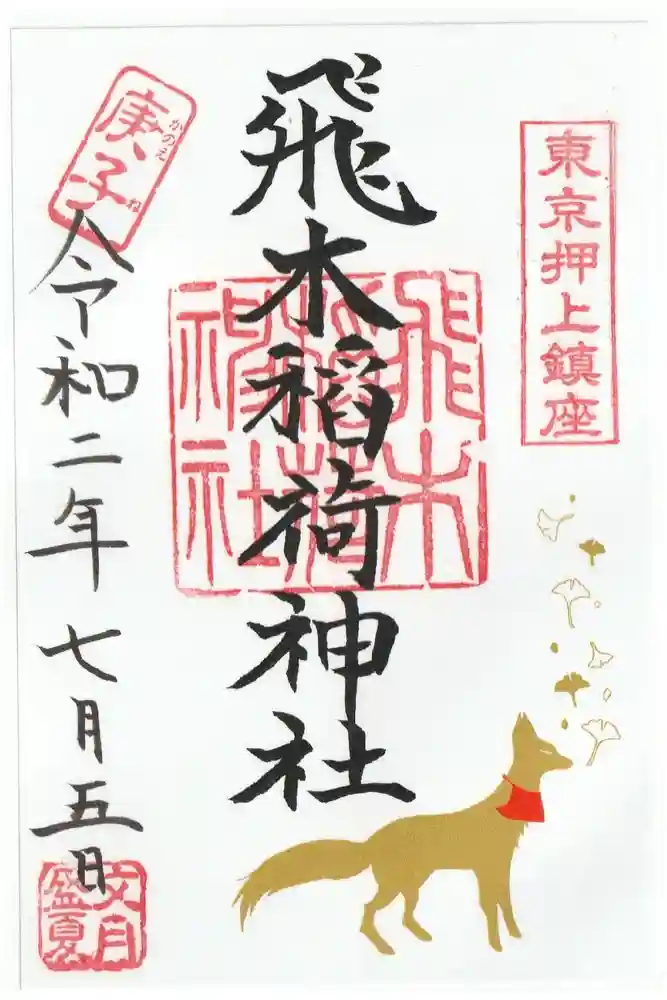 東京押上鎮座
飛木稲荷神社
飛木
稲荷
神社
庚子
かのえ
ね
令和二年七月五日
文月
盛夏